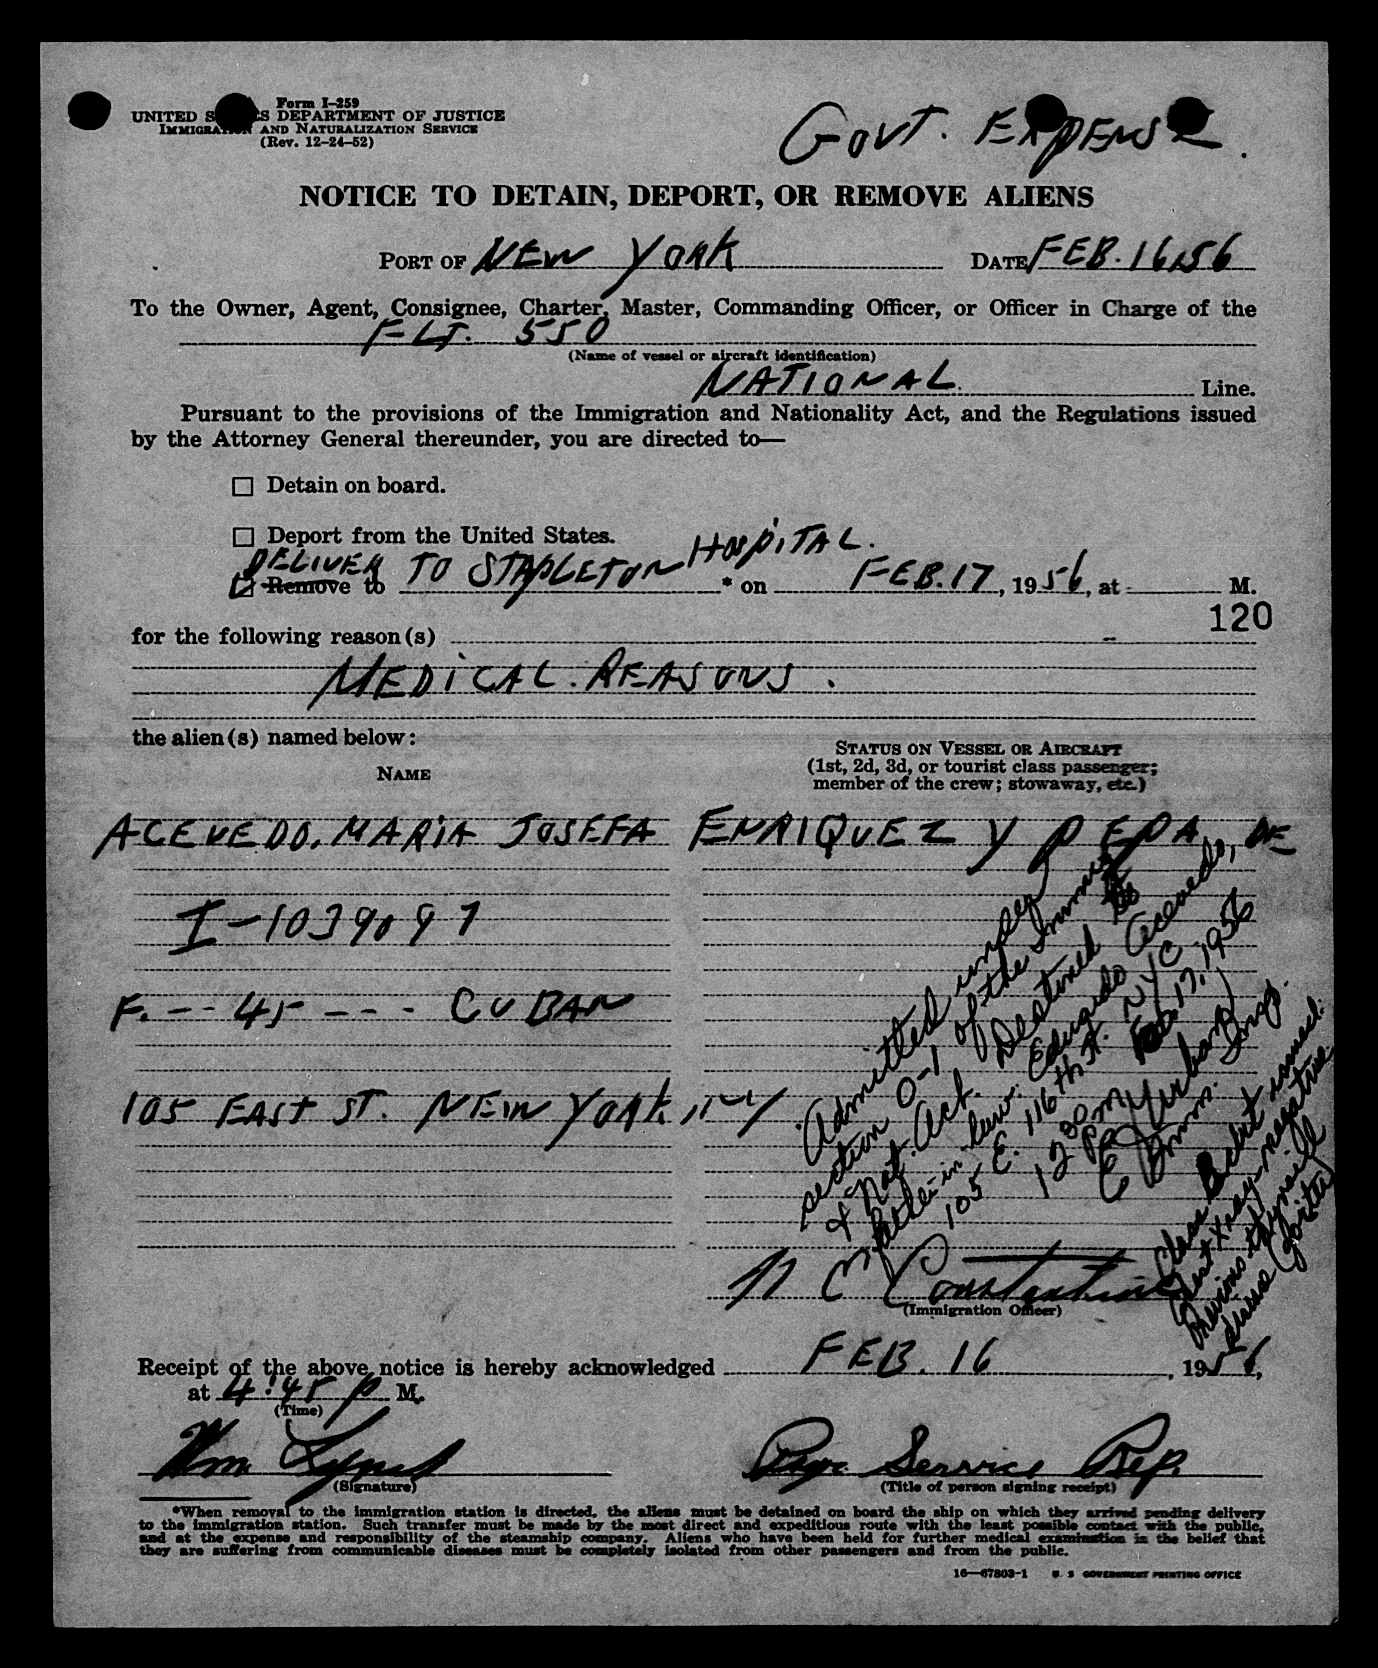 Form I-259
UNITED S S DEPARTMENT OF JUSTICE
IMMIGRATION AND NATURALIZATION SERVICE
(Rev. 12-24-52)
GOVT. EXPENSE.
NOTICE TO DETAIN, DEPORT, OR REMOVE ALIENS
PORT OF NEW YORK DATE FEB. 16, 56
To the Owner, Agent, Consignee, Charter, Master, Commanding Officer, or Officer in Charge of the
FLT. 550
(Name of vessel or aircraft identification)
NATIONAL Line.
Pursuant to the provisions of the Immigration and Nationality Act, and the Regulations issued
by the Attorney General thereunder, you are directed to—
Detain on board.
Deport from the United States.
DELIVER TO STAPLETON HOSPITAL.
Remove to * on FEB. 17, 1956, at M.
120
for the following reason(s)
MEDICAL REASONS.
the alien(s) named below:
NAME
STATUS ON VESSEL OR AIRCRAFT
(1st, 2d, 3d, or tourist class passenger;
member of the crew; stowaway, etc.)
ACEVEDO, MARIA JOSEFA ENRIQUEZ Y PEPA, DE
I-1039097
F. -- 45 --- CUBAN
105 EAST ST. NEW YORK, NY
Admitted under
section 0-1 of the Immig
& Nat. Act. Destined to
father-in-law: Eduardo Acevedo,
105 E. 116th St. NYC
12 00 PM Feb 17, 1956
Imm. Insp.
Class B
chest Xray-negative
Previous thyroid
disease (goiter)
(Immigration Officer)
Receipt of the above notice is hereby acknowledged FEB. 16, 1956,
at 4:45 P M.
(Time)
Wm Lynch
(Signature)
Psgr. Service Rep.
(Title of person signing receipt)
*When removal to the immigration station is directed, the aliens must be detained on board the ship on which they arrived pending delivery
to the immigration station. Such transfer must be made by the most direct and expeditious route with the least possible contact with the public,
and at the expense and responsibility of the steamship company. Aliens who have been held for further medical examination in the belief that
they are suffering from communicable diseases must be completely isolated from other passengers and from the public.
16—67803-1 U. S. GOVERNMENT PRINTING OFFICE